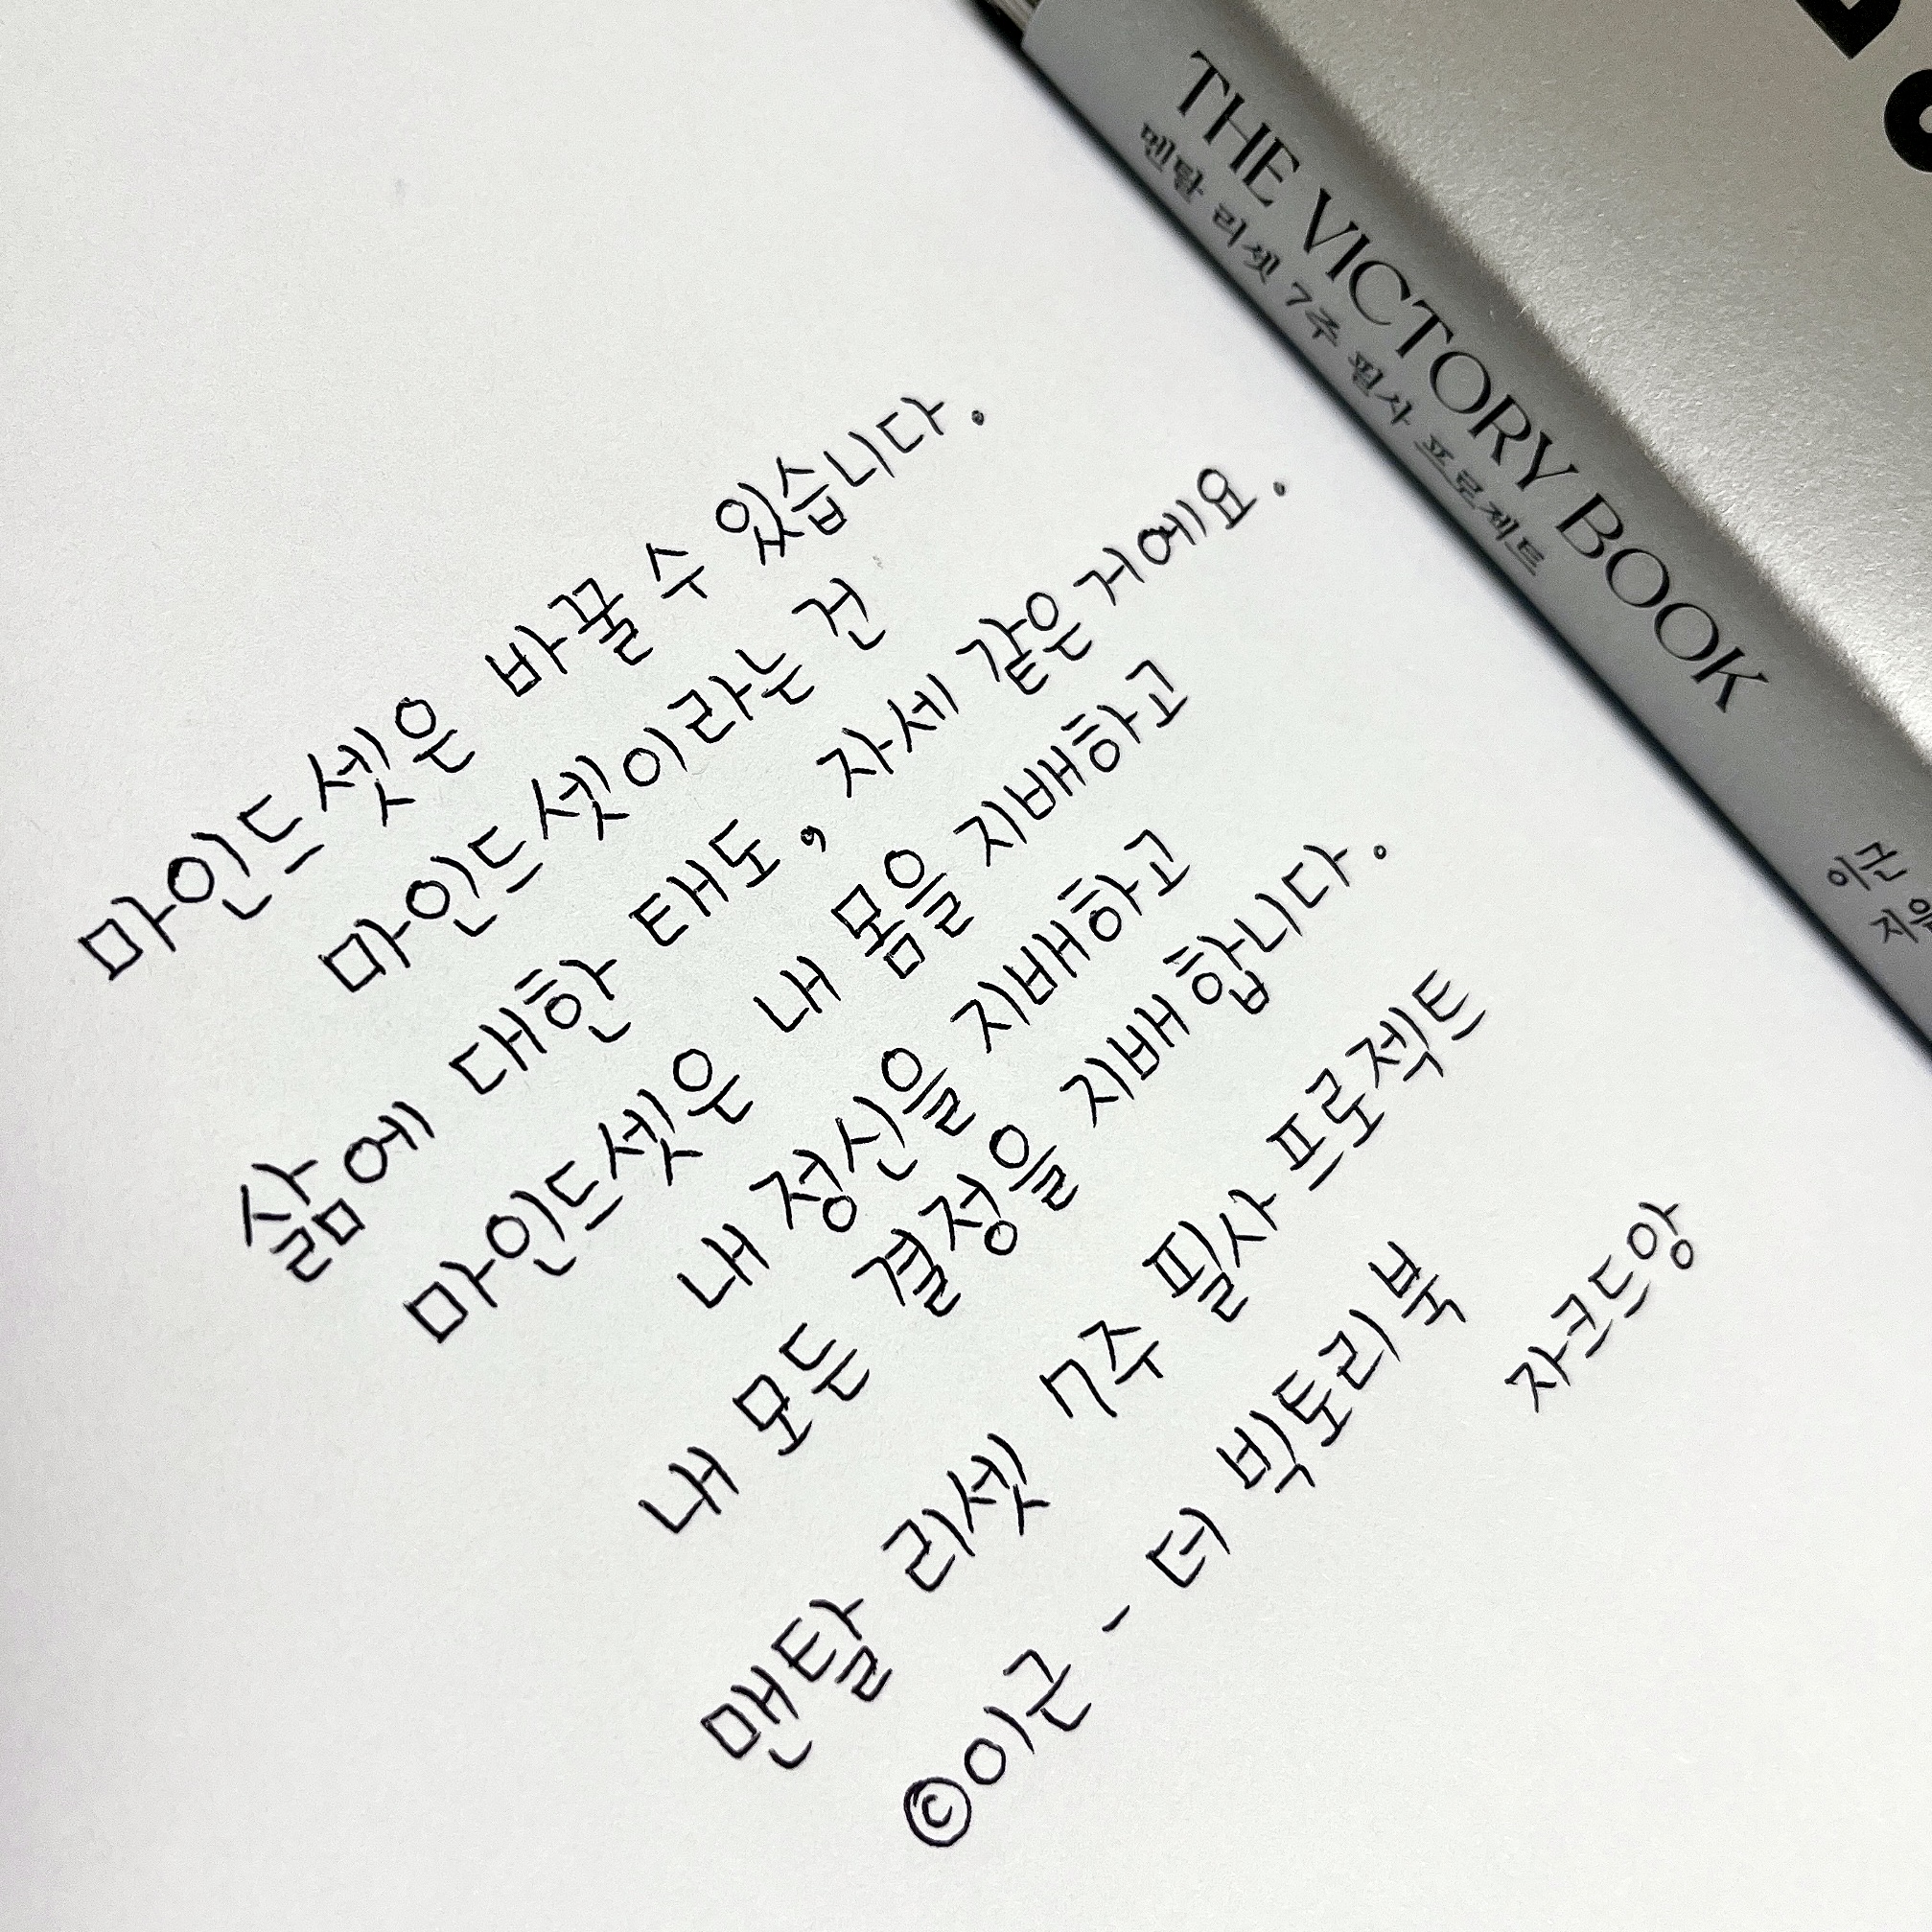 마인드셋은 바꿀 수 있습니다.
마인드셋이라는 건
삶에 대한 태도, 자세 같은거에요.
마인드셋은 내 몸을 지배하고
내 정신을 지배하고
내 모든 결정을 지배합니다.
맨탈 리셋 7주 필사 프로젝트
©이근 - 더 빅토리북
자크드앙
THE VICTORY BOOK
멘탈 리셋 7주 필사 프로젝트
이근
지음